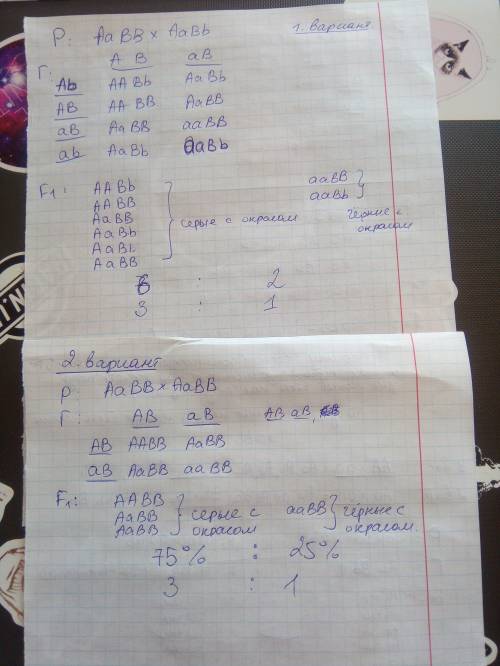 P: AaBB x AaBb 1. вариант
Г: AB aB
Ab AABb AaBb
AB AABB AaBB
aB AaBB aaBB
ab AaBb aaBb
F1: AABb
AABB
AaBB
AaBb
AaBb
AaBB
серые с окрасом
aaBB
aaBb
чёрные с
окрасом
6 : 2
3 : 1
2. вариант
P: AaBB x AaBB
Г: AB aB AB aB,
AB AABB AaBB
aB AaBB aaBB
F1: AABB
AaBB
AaBB
серые с
окрасом
aaBB
чёрные с
окрасом.
75% : 25%
3 : 1